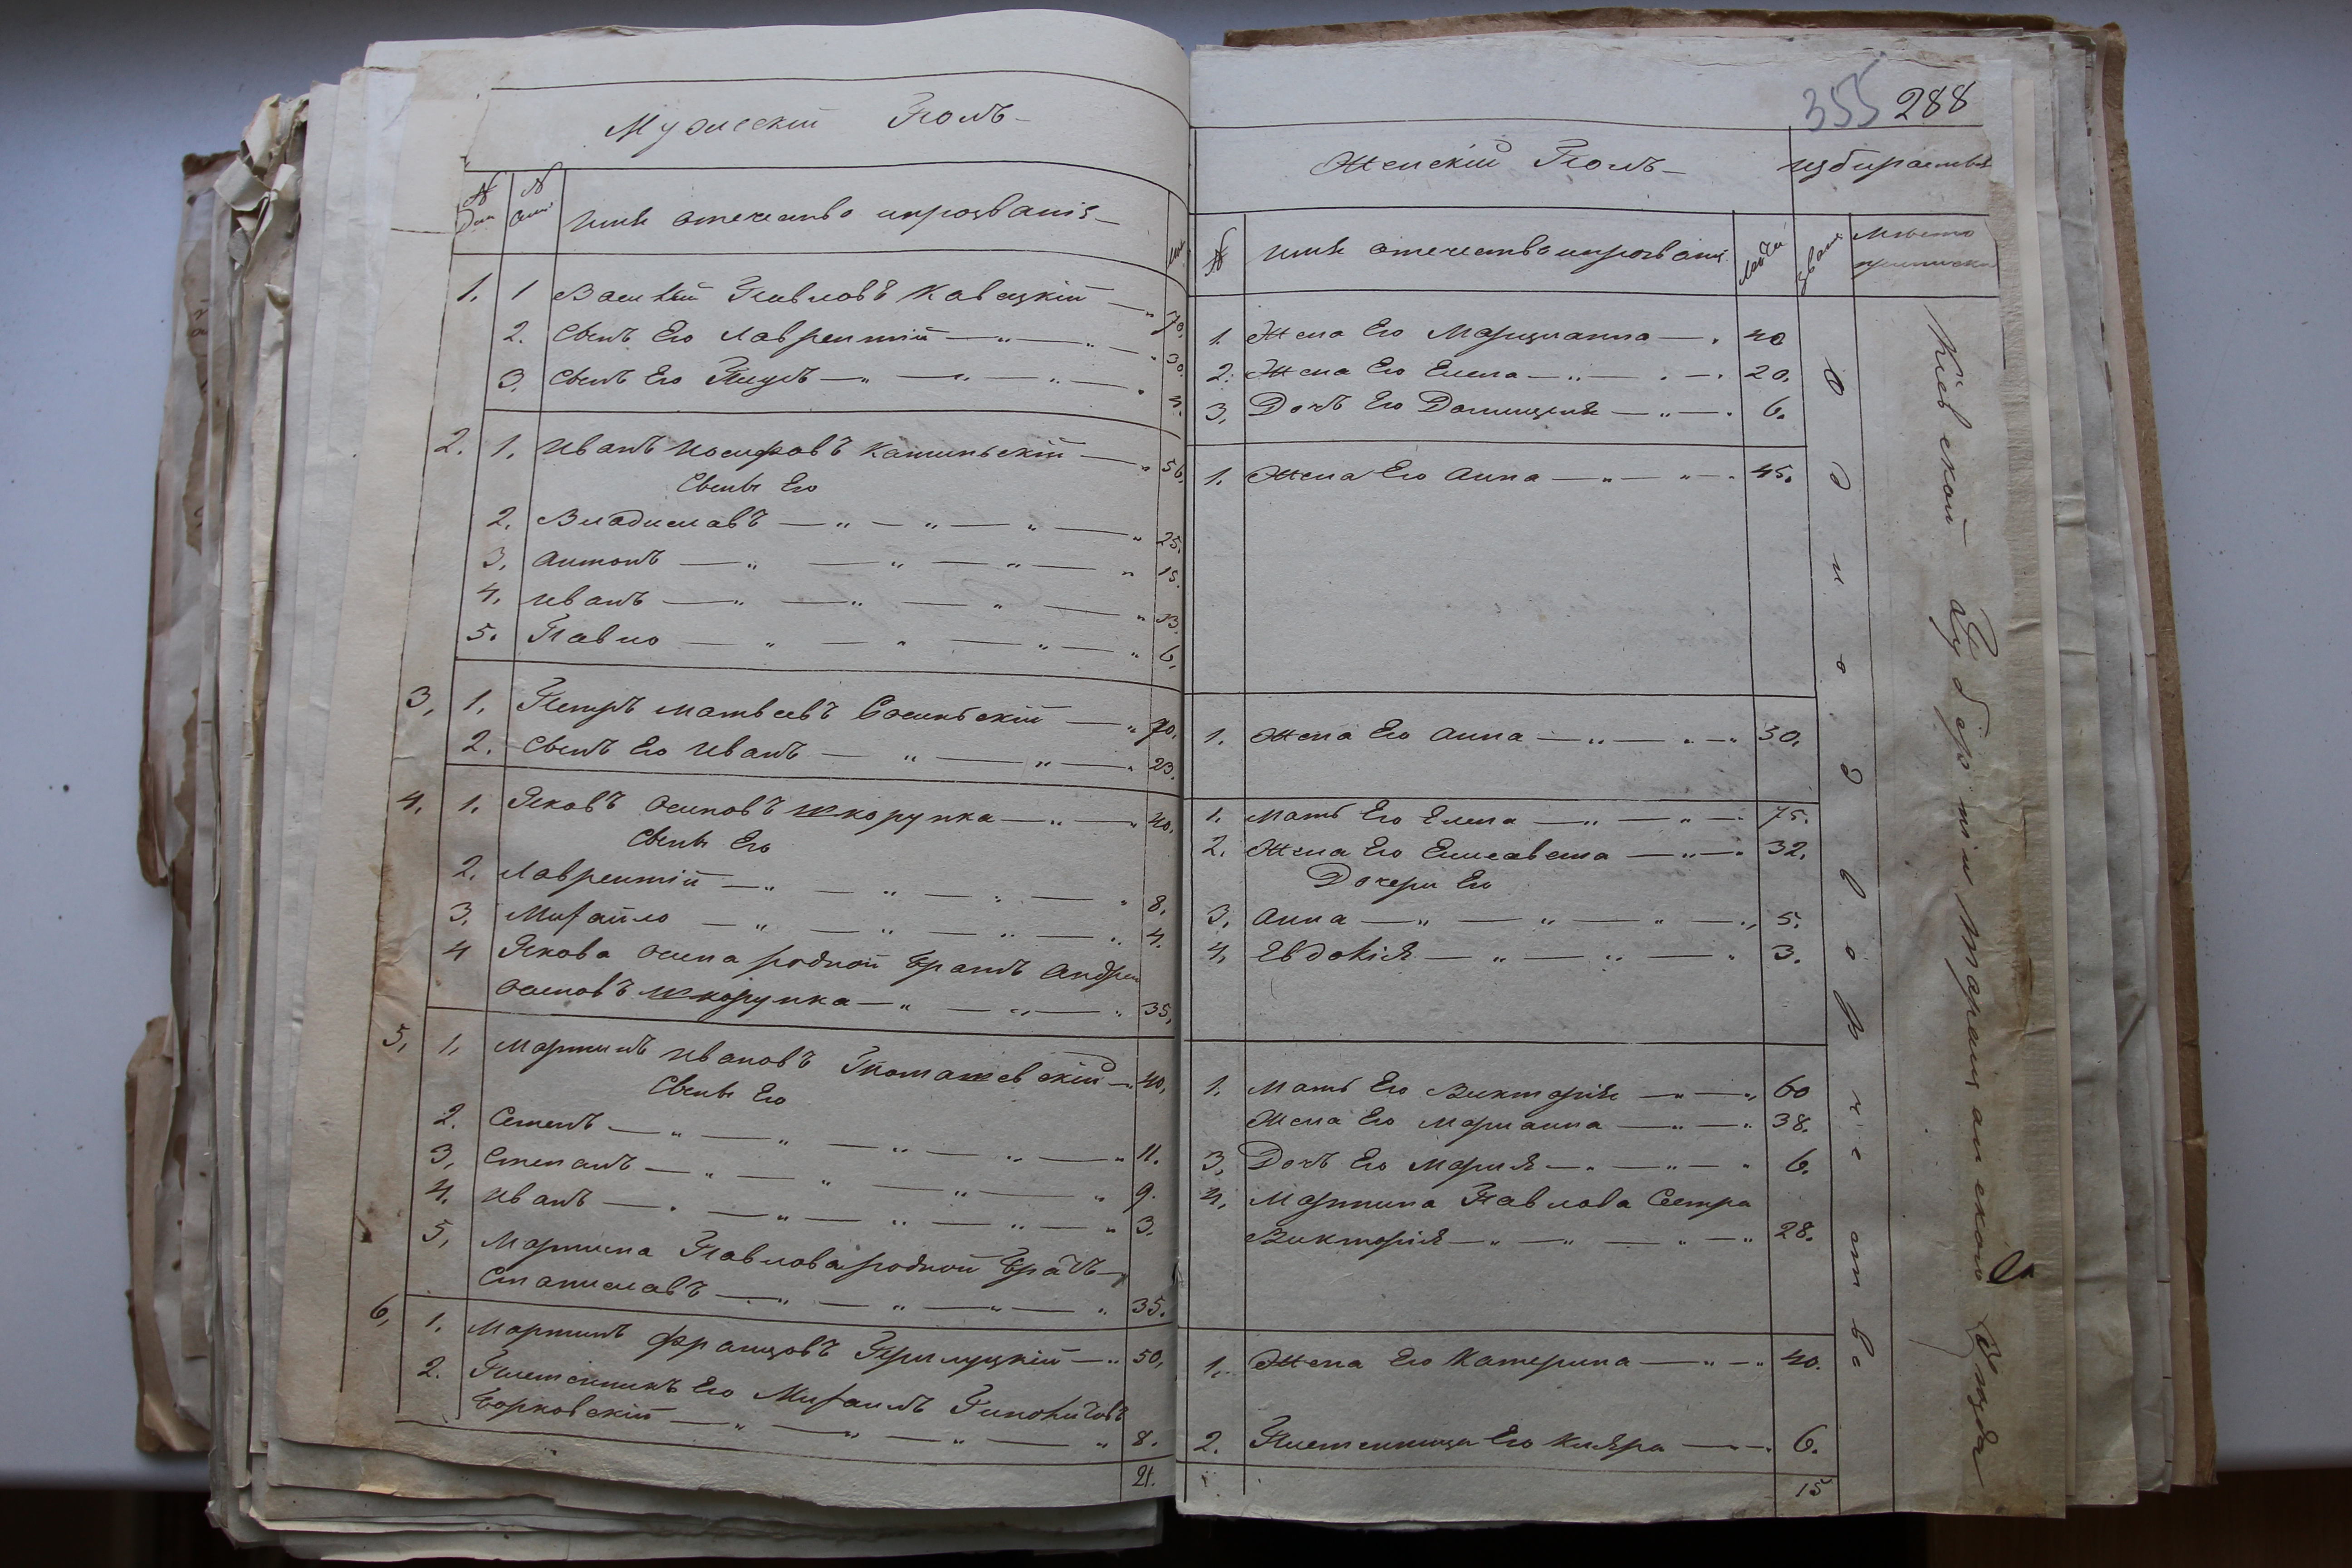 Мужескій Полъ
N
N
Имя отечество и прозваніе
1. 1 Василій Павловъ Кавецкій 70.
2. Сынъ Его Лаврентій 30.
3. Сынъ Его 4.
2. 1. Иванъ Иосифовъ 56.
Сыны Его
2. Владиславъ 25.
3. Антонъ 15.
4. Иванъ 13.
5. Павло 6.
3. 1. Петръ Матвеевъ 70.
2. Сынъ Его Иванъ 23.
4. 1. Яковъ Осиповъ Шкорупка 40.
Сыны Его
2. Лаврентій 8.
3. Михайло 4.
4 Якова Осипа родной Братъ Андрей
Осиповъ Шкорупка 35.
5. 1. Мартинъ Ивановъ 40.
Сыны Его
2. Семенъ 11.
3. Степанъ 9.
4. Иванъ 3.
5. Мартина Павлова родной Братъ
Станиславъ 35.
6. 1. Мартинъ Францовъ Прилуцкій 50.
2. Племенникъ Его Михаилъ
Борковскій 8.
21.
355 288
Женскій Полъ
N Имя отечество и прозваніе Лета Место
1. Жена Его Марцианна 40
2. Жена Его Елена 20.
3. Дочь Его Домицеля 6.
1. Жена Его Анна 45.
1. Жена Его Анна 50.
1. Мать Его Елена 75.
2. Жена Его Елисавета 32.
Дочери Его
3. Анна 5.
4. Евдокія 3.
1. Мать Его Викторія 60
Жена Его Марианна 38.
3. Дочь Его Марія 6.
4. Мартина Павлова Сестра
Викторія 28.
1. Жена Его Катерина 40.
2. Племенница Его Кляра 6.
15
Однодворческатва
Кіевской Губерніи Таращанского Уезда